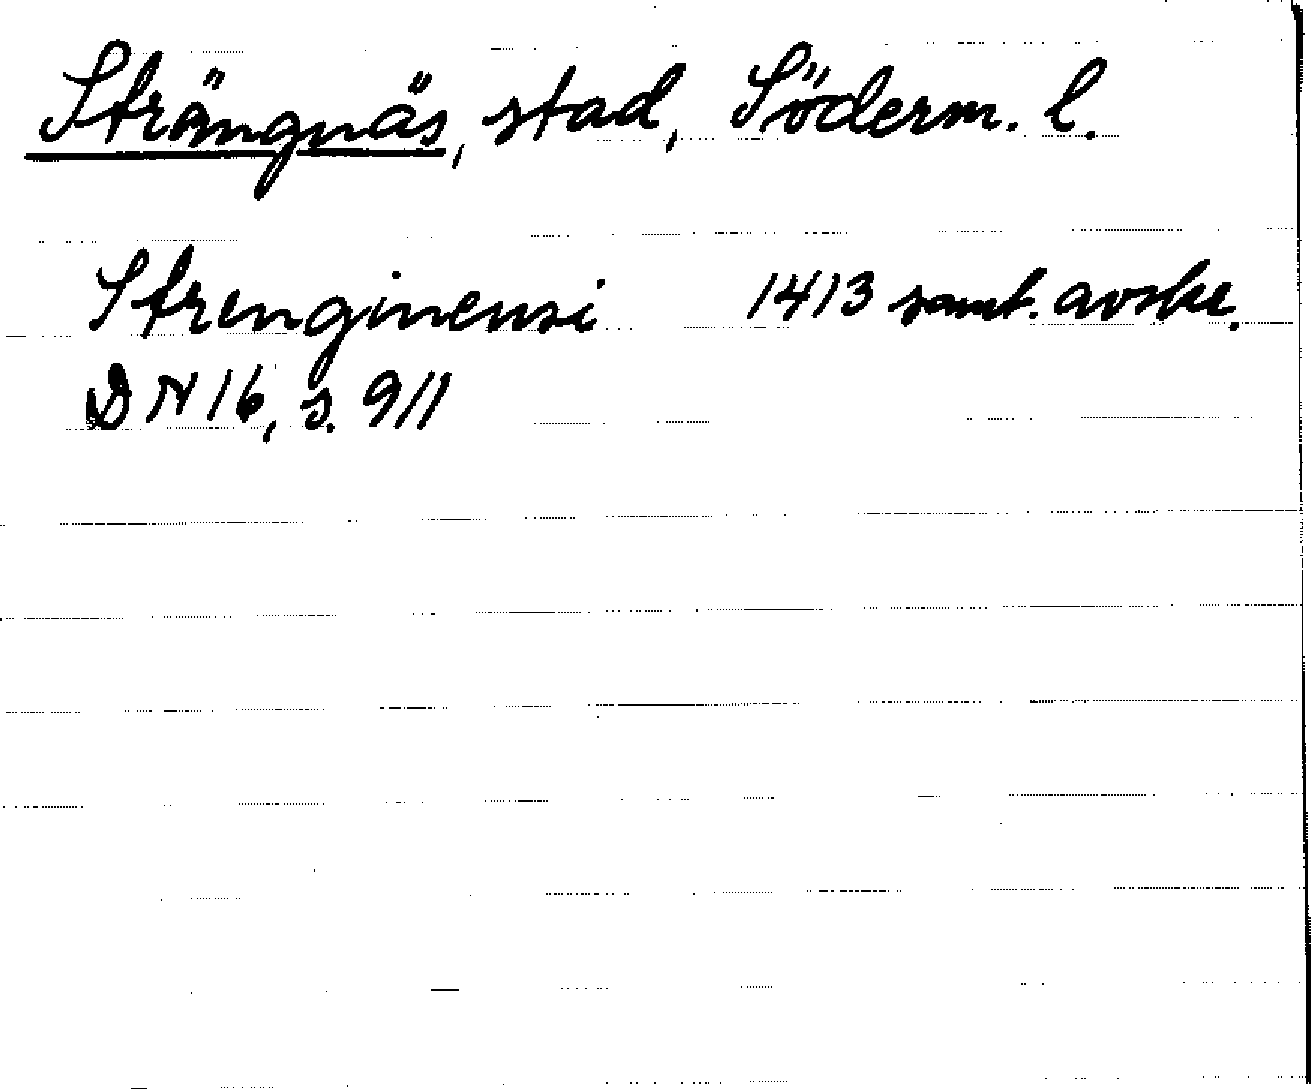 Strängnäs, stad, Söderm. l.
Strenginensi 1413 samt. avskr.
DN 16, s. 911